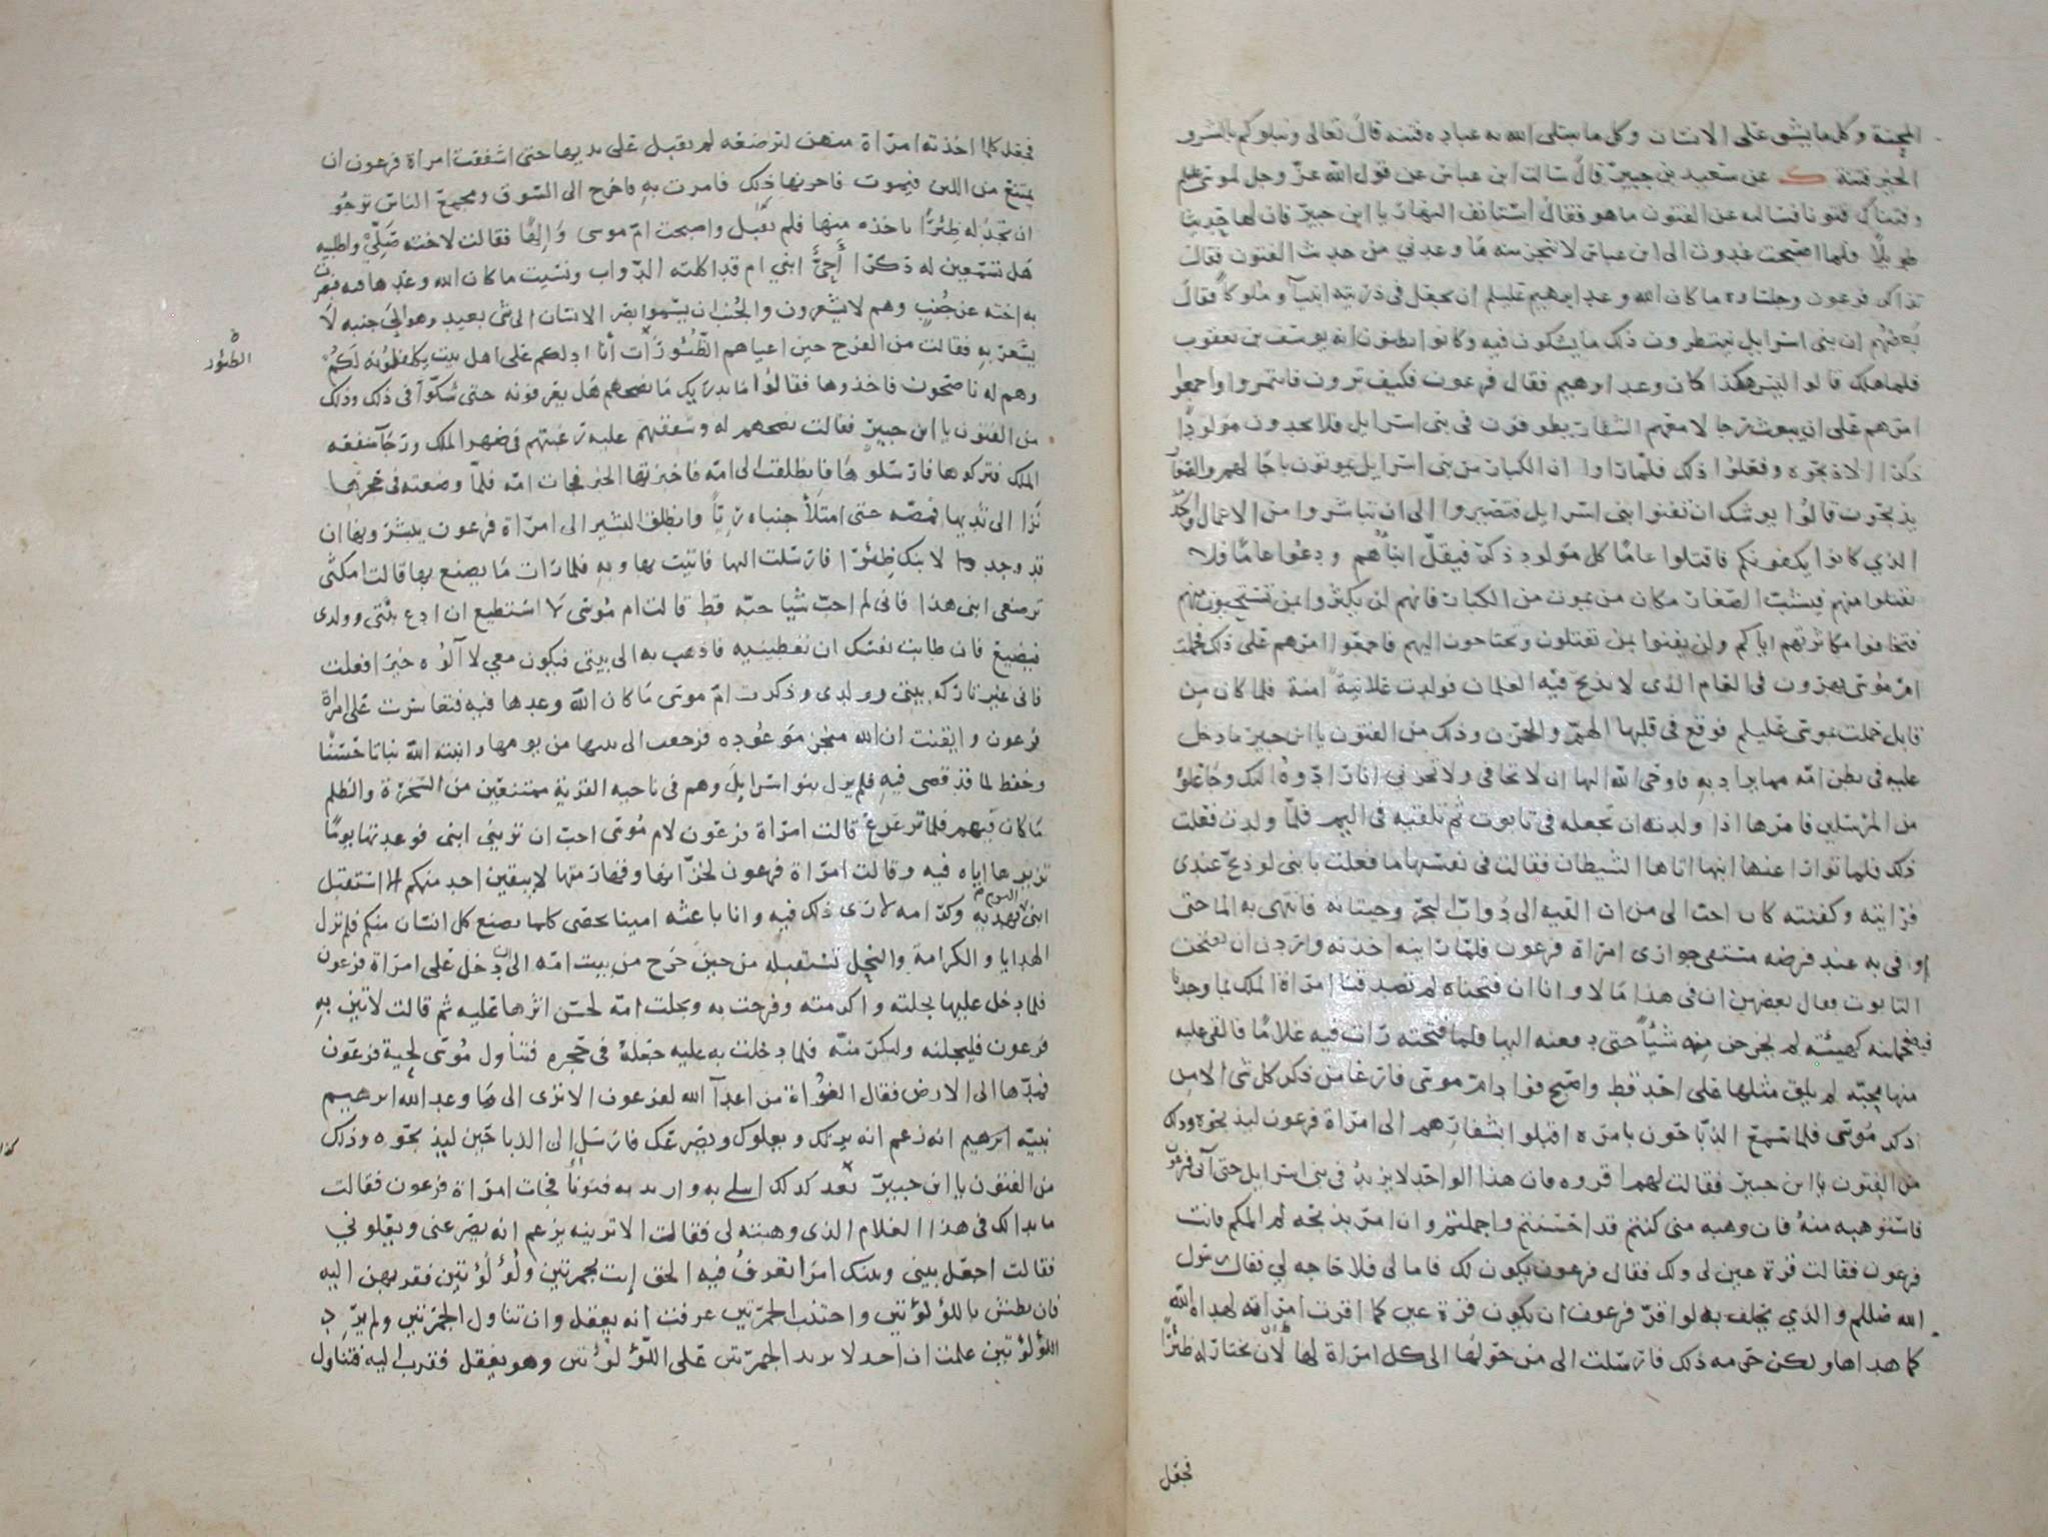 المحنة وكل ما يشق على الانسان وكل ما يبتلى الله به عباده فتنه قال تعالى ونبلوكم بالشر و
الخير فتنة عن سعيد بن جبير قال سالت ابن عباس عن قول الله عز وجل لموسى عليلم
وفتناك فتونا فسالته عن الفتون ما هو فقال استانف النهار يا ابن جبير فان لها حديثا
طويلا فلما اصبحت غدوت الى ابن عباس لانتجز منه ما وعدني من حديث الفتون فقال
تذاكر فرعون وجلساوه ما كان الله وعد ابرهيم عليلم ان يجعل في ذريته انبيآ وملوكا فقال
بعضهم ان بنى اسرايل ينتظرون ذلك ما يشكون فيه وكانوا يظنون انه يوسف بن يعقوب
فلما هلك قالوا ليس هكذا كان وعد ابرهيم فقال فرعون فكيف ترون فاتمروا واجمعوا
امرهم على ان يبعث رجالا معهم الشفار يطوفون في بنى اسرايل فلا يجدون مولودا
ذكرا الا ذبحوه وفعلوا ذلك فلما راوا ان الكبار من بنى اسرايل يموتون باجالهم والصغار
يذبحون قالوا يوشك ان تفنوا بنى اسرايل فتصيروا الى ان تباشروا من الاعمال والخدمة
الذي كانوا يكفونكم فاقتلوا عاما كل مولود ذكر فيقل ابناهم ودعوا عاما فلا
تقتلوا منهم فيشب الصغار مكان من يموت من الكبار فانهم لن يكثروا بمن تستحيون منهم
فتخافوا مكاثرتهم اياكم ولن يفنوا بمن تقتلون وتحتاجون اليهم فاجمعوا امرهم على ذلك فحملت
ام موسى بهرون في العام الذى لا يذبح فيه الغلمان فولدت علانية امنة فلما كان من
قابل حملت بموسى عليلم فوقع في قلبها الهم والحزن وذلك من الفتون يا ابن جبير ما دخل
عليه في بطن امه مما يراد به فاوحى الله اليها ان لا تخافي ولا تحزني انا رادوه اليك وجاعلوه
من المرسلين فامرها اذا ولدته ان تجعله في تابوت ثم تلقيه في اليم فلما ولدت فعلت
ذلك فلما توارا عنها ابنها اتاها الشيطان فقالت في نفسها ما فعلت بابني لو ذبح عندى
فواريته وكفنته كان احب الى من ان القيه الى دواب البحر وحيتانه فانتهى به الما حتى
اوفى به عند فرضه مستقى جوارى امراة فرعون فلما راينه اخذنه واردن ان يفتحن
التابوت فقال بعضهن ان في هذا مالا وانا ان فتحناه لم تصدقنا امراة الملك بما وجدنا
فيه فحملنه كهيئته لم يخرجن منه شيًا حتى دفعنه اليها فلما فتحته رات فيه غلاما فالقى عليه
منها محبه لم يلق مثلها على احد قط واصبح فواد ام موسى فارغا من ذكر كل شى الا من
ذكر موسى فلما سمع الذباحون بامره اقبلوا بشفارهم الى امراة فرعون ليذبحوه وذلك
من الفتون يا ابن جبير فقالت لهم اقروه فان هذا الواحد لا يزيد في بنى اسرايل حتى آتى فرعون
فاستوهبه منه فان وهبه منى كنتم قد احسنتم واجملتم وان امر بذبحه لم المكم فاتت
فرعون فقالت قرة عين لى ولك فقال فرعون يكون لك فاما لى فلا حاجه لي فقال رسول
الله صللم والذي يحلف به لو اقر فرعون ان يكون قرة عين كما اقرت امراته لهداه الله
كما هداها ولكن حرمه ذلك فارسلت الى من حولها الى كل امراة لها لان تختار له ظئرا
فجعل
فجعل كلما اخذته امراة منهن لترضعه لم يقبل على ثديها حتى اشفقت امراة فرعون ان
يمتنع من اللبن فيموت فاحزنها ذلك فامرت به فاخرج الى السوق ومجمع الناس ترجو
ان تجد له ظئرا ياخذه منها فلم يقبل واصبحت ام موسى والها فقالت لاخته قصيه واطلبيه
هل تسمعين له ذكرا أحيٌّ ابني ام قد اكلته الدواب ونسيت ما كان الله وعدها فيه فبصرت
به اخته عن جنب وهم لا يشعرون والجنب ان يسموا بصر الانسان الى شى بعيد وهو الى جنبه لا
يشعر به فقالت من الفرح حين اعياهم الظئورات انا ادلكم على اهل بيت يكفلونه لكم
الظئور
وهم له ناصحون فاخذوها فقالوا ما يدريك ما نصحهم هل يعرفونه حتى شكوا في ذلك وذلك
من الفتون يا ابن جبير فقالت نصحهم له وشفقتهم عليه رغبتهم في صهر الملك ورجآ منفعه
الملك فتركوها فارسلوها فانطلقت الى امه فاخبرتها الخبر فجات امه فلما وضعته في حجرها
نزا الى ثديها فمصه حتى امتلأ جنباه رِيًّا وانطلق البشير الى امراة فرعون يبشرونها ان
قد وجدنا لابنك ظئرا فارسلت اليها فاتيت بها وبه فلما رات ما يصنع بها قالت امكثى
ترضعى ابنى هذا فانى لم احب شيا حبه قط قالت ام موسى لا استطيع ان ادع بيتى وولدى
فيضيع فان طابت نفسك ان تعطينيه فاذهب به الى بيتى فيكون معي لا آلوه خيرا فعلت
فانى غير تاركه بيتى وولدى وذكرت ام موسى ما كان الله وعدها فيه فتعاسرت على امراة
فرعون وايقنت ان الله منجز موعوده فرجعت الى بيتها من يومها وانبته الله نباتا حسنا
وحفظ لما قد قضى فيه فلم يزل بنو اسرايل وهم في ناحيه القرية ممتنعين من السخرة والظلم
ما كان فيهم فلما ترعرع قالت امراة فرعون لام موسى احب ان تريني ابني فوعدتها يوما
تزيرها اياه فيه وقالت امراة فرعون لخزانها وقهارمتها لا يبقين احد منكم الا استقبل
ابني اليوم بهديه وكرامه لارى ذلك فيه وانا باعثه امينا يحصى كلما يصنع كل انسان منكم فلم تزل
الهدايا والكرامة والنحل تستقبله من حين خرج من بيت امه الى ان دخل على امراة فرعون
فلما دخل عليها بجلته واكرمته وفرحت به وبجلت امه لحسن اثرها عليه ثم قالت لاتين به
فرعون فليبجلنه وليكرمنه فلما دخلت به عليه جعله في حجره فتناول موسى لحية فرعون
فمدها الى الارض فقال الغواة من اعدآ الله لفرعون الا ترى الى ما وعد الله ابرهيم
نبيه ابرهيم انه زعم انه يرثك ويعلوك ويصرعك فارسل الى الذباحين ليذبحوه وذلك
من الفتون يا ابن جبير بعد كل ذلك ابتلى به واريد به فتونا فجات امراة فرعون فقالت
ما بدا لك في هذا الغلام الذى وهبته لى فقالت الا ترينه يزعم انه يصرعنى ويعلوني
فقالت اجعل بيني وبينك امرا تعرف فيه الحق ايت بجمرتين ولؤلؤتين فقربهن اليه
فان بطش باللؤلؤتين واجتنب الجمرتين عرفت انه يعقل وان تناول الجمرتين ولم يرد
اللؤلؤتين علمت ان احد لا يريد الجمرتين على اللؤلؤتين وهو يعقل فقرب اليه فتناول